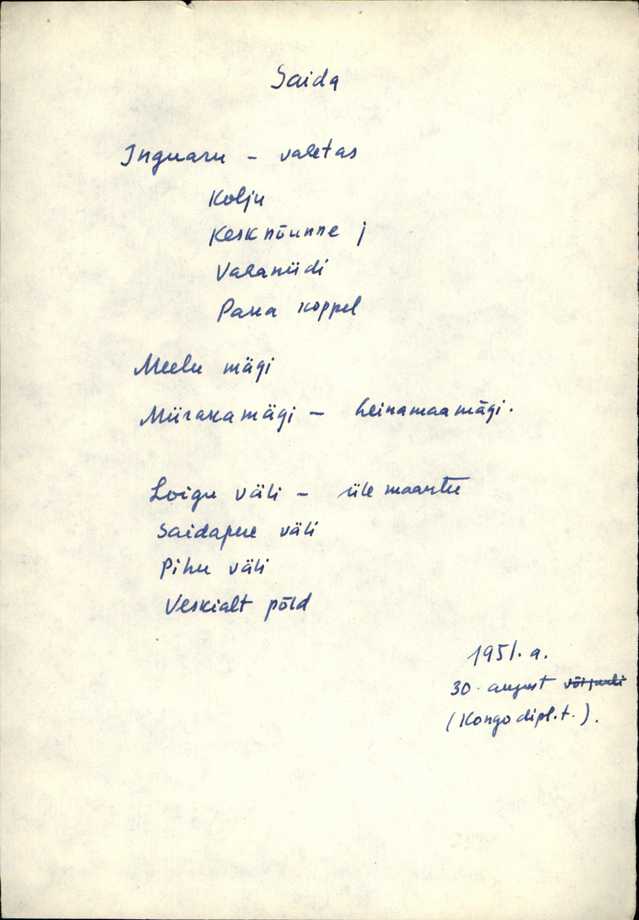 Saida
Inguaru - valetas
Kolju
Kesknõunne j
Vaaniidi
Para koppel
Meelu mägi
Mürakamägi - heinamaamägi.
Loigu väli - üle maantee
Saidapere väli
Pihu väli
Veskialt põld
1951. a.
30. august
(Kongo dipl.t.).